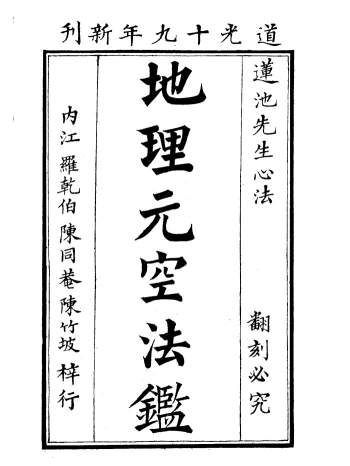 道光十九年新刊
蓮池先生心法
翻刻必究
地理元空法鑑
内江 羅乾伯 陳同菴 陳竹坡 梓行